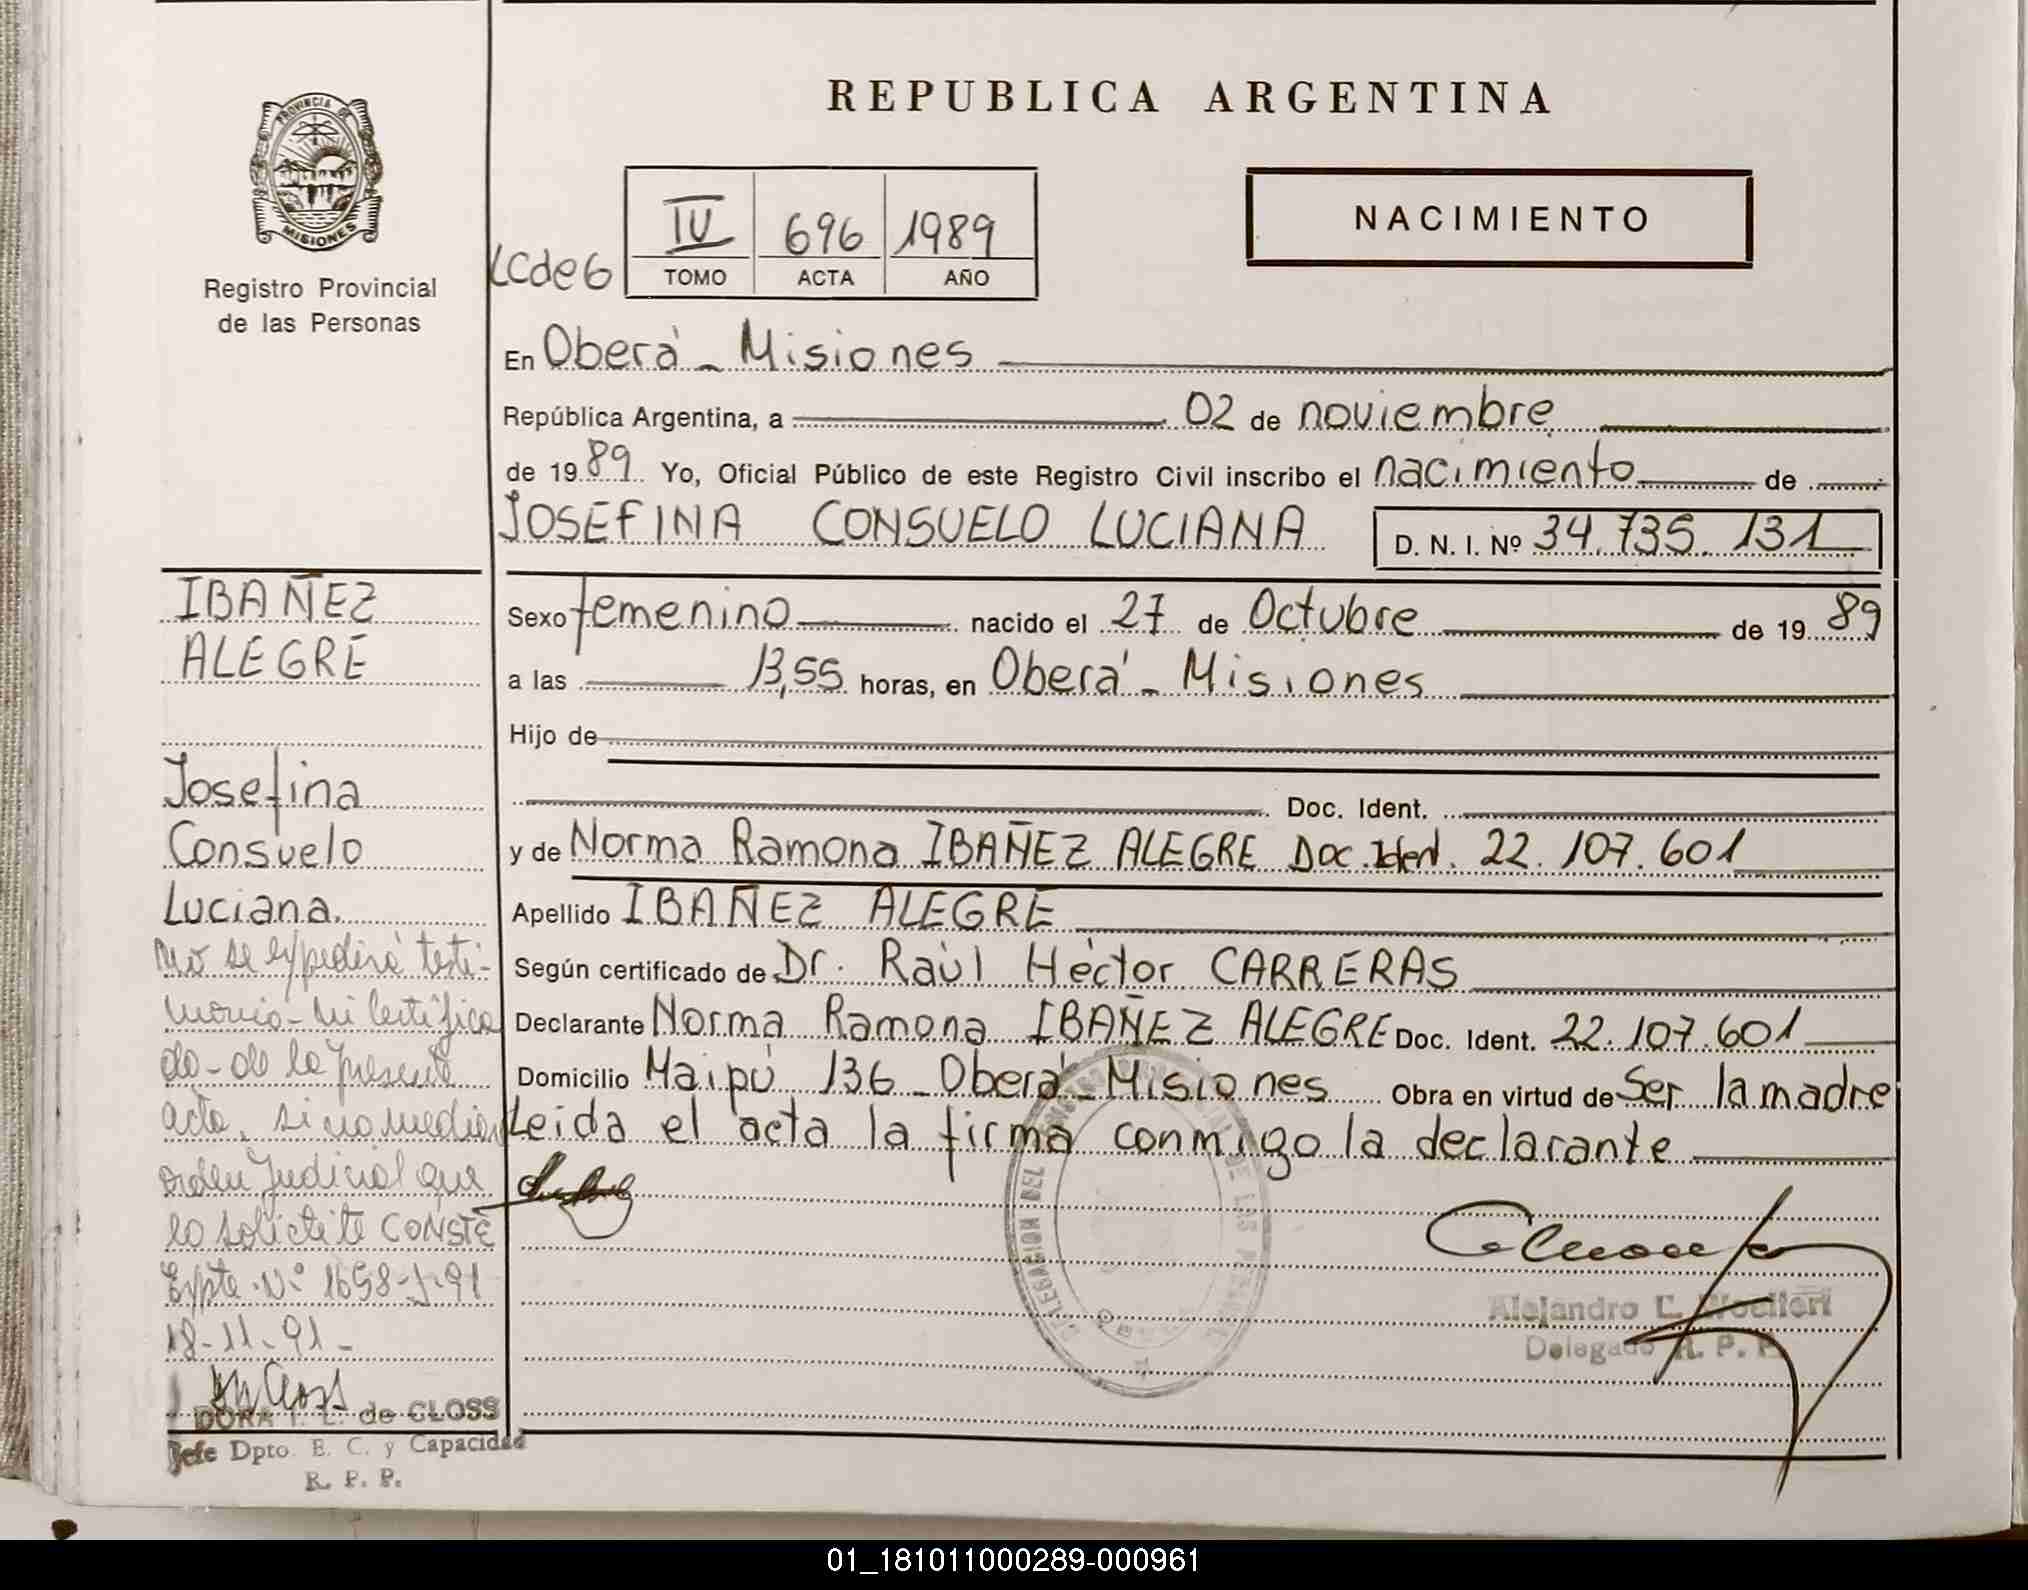 REPUBLICA ARGENTINA
PROVINCIA DE
MISIONES
Registro Provincial
de las Personas
NACIMIENTO
IV 696 1989
TOMO ACTA AÑO
En Oberá - Misiones
República Argentina, a 02 de noviembre
de 1989 Yo, Oficial Público de este Registro Civil inscribo el nacimiento de
JOSEFINA CONSUELO LUCIANA D. N. I. Nº 34.735.131
Sexo femenino nacido el 27 de Octubre de 1989
a las 13,55 horas, en Oberá - Misiones
Hijo de
Doc. Ident.
y de Norma Ramona IBAÑEZ ALEGRE Doc. Ident. 22.107.601
Apellido IBAÑEZ ALEGRE
Según certificado de Dr. Raúl Héctor CARRERAS
Declarante Norma Ramona IBAÑEZ ALEGRE Doc. Ident. 22.107.601
Domicilio Maipú 136 - Oberá - Misiones Obra en virtud de Ser la madre
Leida el acta la firma conmigo la declarante
IBAÑEZ
ALEGRE
Josefina
Consuelo
Luciana.
No se expedirá testi-
monio - ni certifica
do - de la presente
acta, si no media
orden Judicial que
lo solicite CONSTE
Expte. Nº 1658-J-91
18-11-91-
DORA de CLOSS
Jefe Dpto. E. C. y Capacidad
R. P. P.
DELEGACION DEL DE LAS
Alejandro
Delegado R. P. P.
01_181011000289-000961